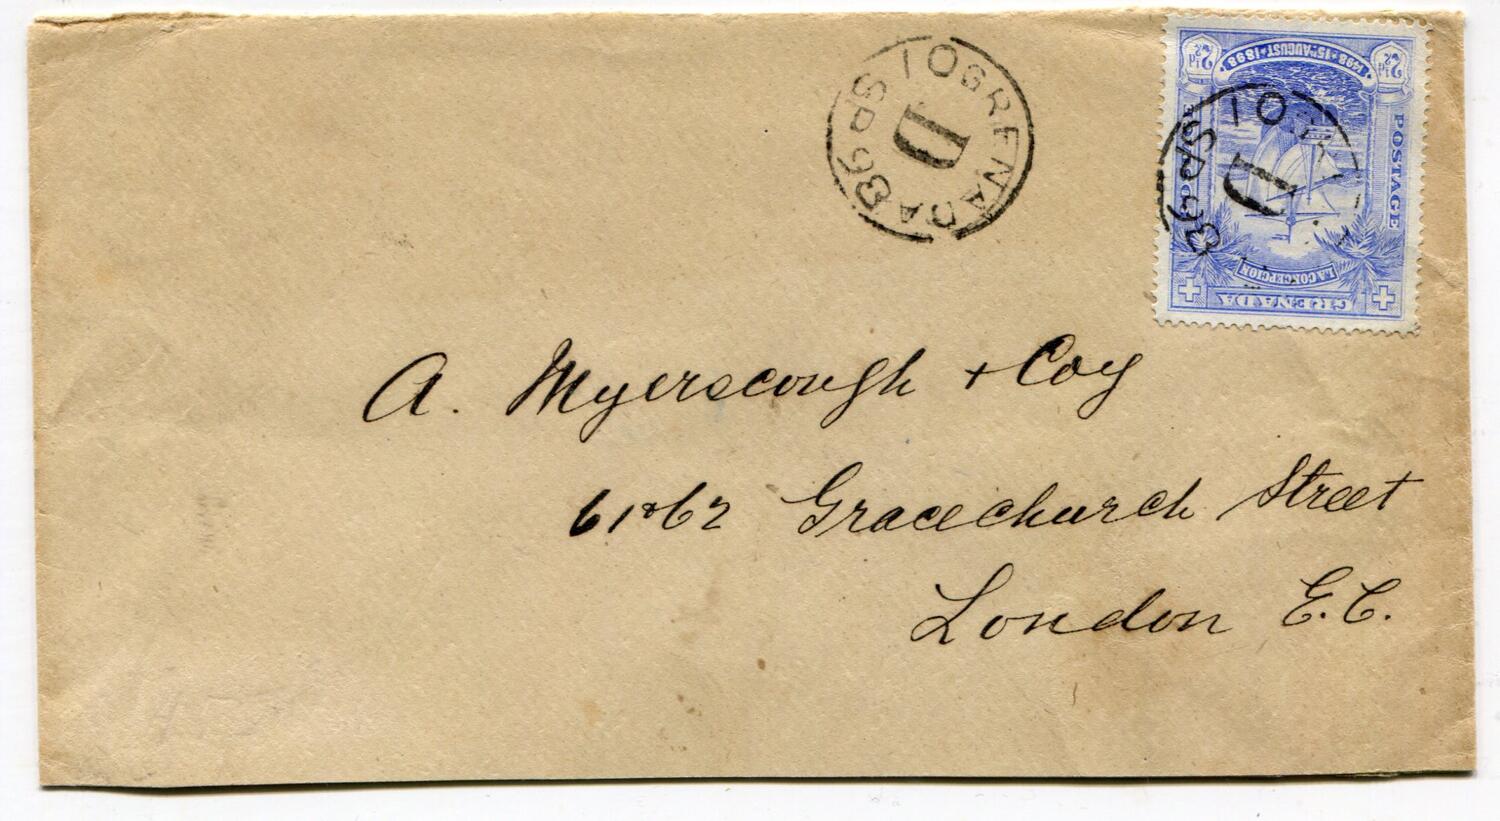 GRENADA
SP 10
98
D
2½d
1498 · 15TH AUGUST · 1898
2½d
POSTAGE
LA CONCEPCION
GRENADA
SP 10
98
D
A. Myerscough + Coy
61 & 62 Gracechurch Street
London E.C.